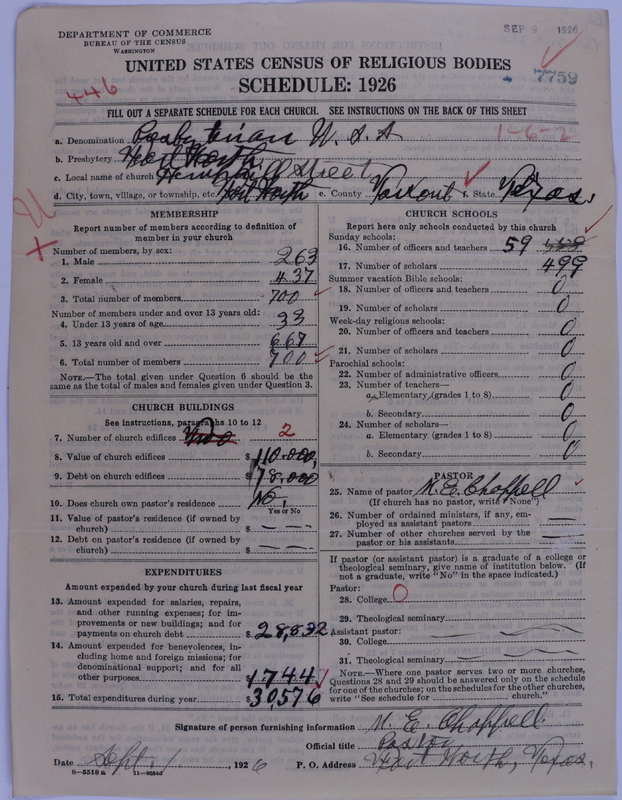 DEPARTMENT OF COMMERCE
BUREAU OF THE CENSUS
WASHINGTON
SEP 9 1926
UNITED STATES CENSUS OF RELIGIOUS BODIES
SCHEDULE: 1926
7759
446
FILL OUT A SEPARATE SCHEDULE FOR EACH CHURCH. SEE INSTRUCTIONS ON THE BACK OF THIS SHEET
a. Denomination Presbyterian U. S. A
1-6-2
b. Presbytery Fort Worth
c. Local name of church Hemphill Street
d. City, town, village, or township, etc. Fort Worth e. County Tarrant f. State Texas.
MEMBERSHIP
Report number of members according to definition of member in your church
Number of members, by sex:
1. Male 263
2. Female 437
3. Total number of members 700
Number of members under and over 13 years old:
4. Under 13 years of age 33
5. 13 years old and over 667
6. Total number of members 700
NOTE.—The total given under Question 6 should be the same as the total of males and females given under Question 3.
CHURCH BUILDINGS
See instructions, paragraphs 10 to 12
7. Number of church edifices Two 2
8. Value of church edifices $ 110.000,
9. Debt on church edifices $ 78.000
10. Does church own pastor's residence No,
Yes or No
11. Value of pastor's residence (if owned by church) $ — —
12. Debt on pastor's residence (if owned by church) $ — —
EXPENDITURES
Amount expended by your church during last fiscal year
13. Amount expended for salaries, repairs, and other running expenses; for improvements or new buildings; and for payments on church debt $ 28,832
14. Amount expended for benevolences, including home and foreign missions; for denominational support; and for all other purposes $ 1744
15. Total expenditures during year $ 30,576
CHURCH SCHOOLS
Report here only schools conducted by this church
Sunday schools:
16. Number of officers and teachers 59
17. Number of scholars 499
Summer vacation Bible schools:
18. Number of officers and teachers 0
19. Number of scholars 0
Week-day religious schools:
20. Number of officers and teachers 0
21. Number of scholars 0
Parochial schools:
22. Number of administrative officers 0
23. Number of teachers—
a. Elementary (grades 1 to 8) 0
b. Secondary 0
24. Number of scholars—
a. Elementary (grades 1 to 8) 0
b. Secondary 0
PASTOR
25. Name of pastor M. E. Chappell
(If church has no pastor, write "None")
26. Number of ordained ministers, if any, employed as assistant pastors —
27. Number of other churches served by the pastor or his assistants —
If pastor (or assistant pastor) is a graduate of a college or theological seminary, give name of institution below. (If not a graduate, write "No" in the space indicated.)
Pastor:
28. College 0
29. Theological seminary
Assistant pastor:
30. College
31. Theological seminary
NOTE.—Where one pastor serves two or more churches, Questions 28 and 29 should be answered only on the schedule for one of the churches; on the schedules for the other churches, write "See schedule for church."
Signature of person furnishing information M. E. Chappell
Official title Pastor
Date Sept. 1, 1926 P. O. Address Fort Worth, Texas.
8-5318 a 11-9054d